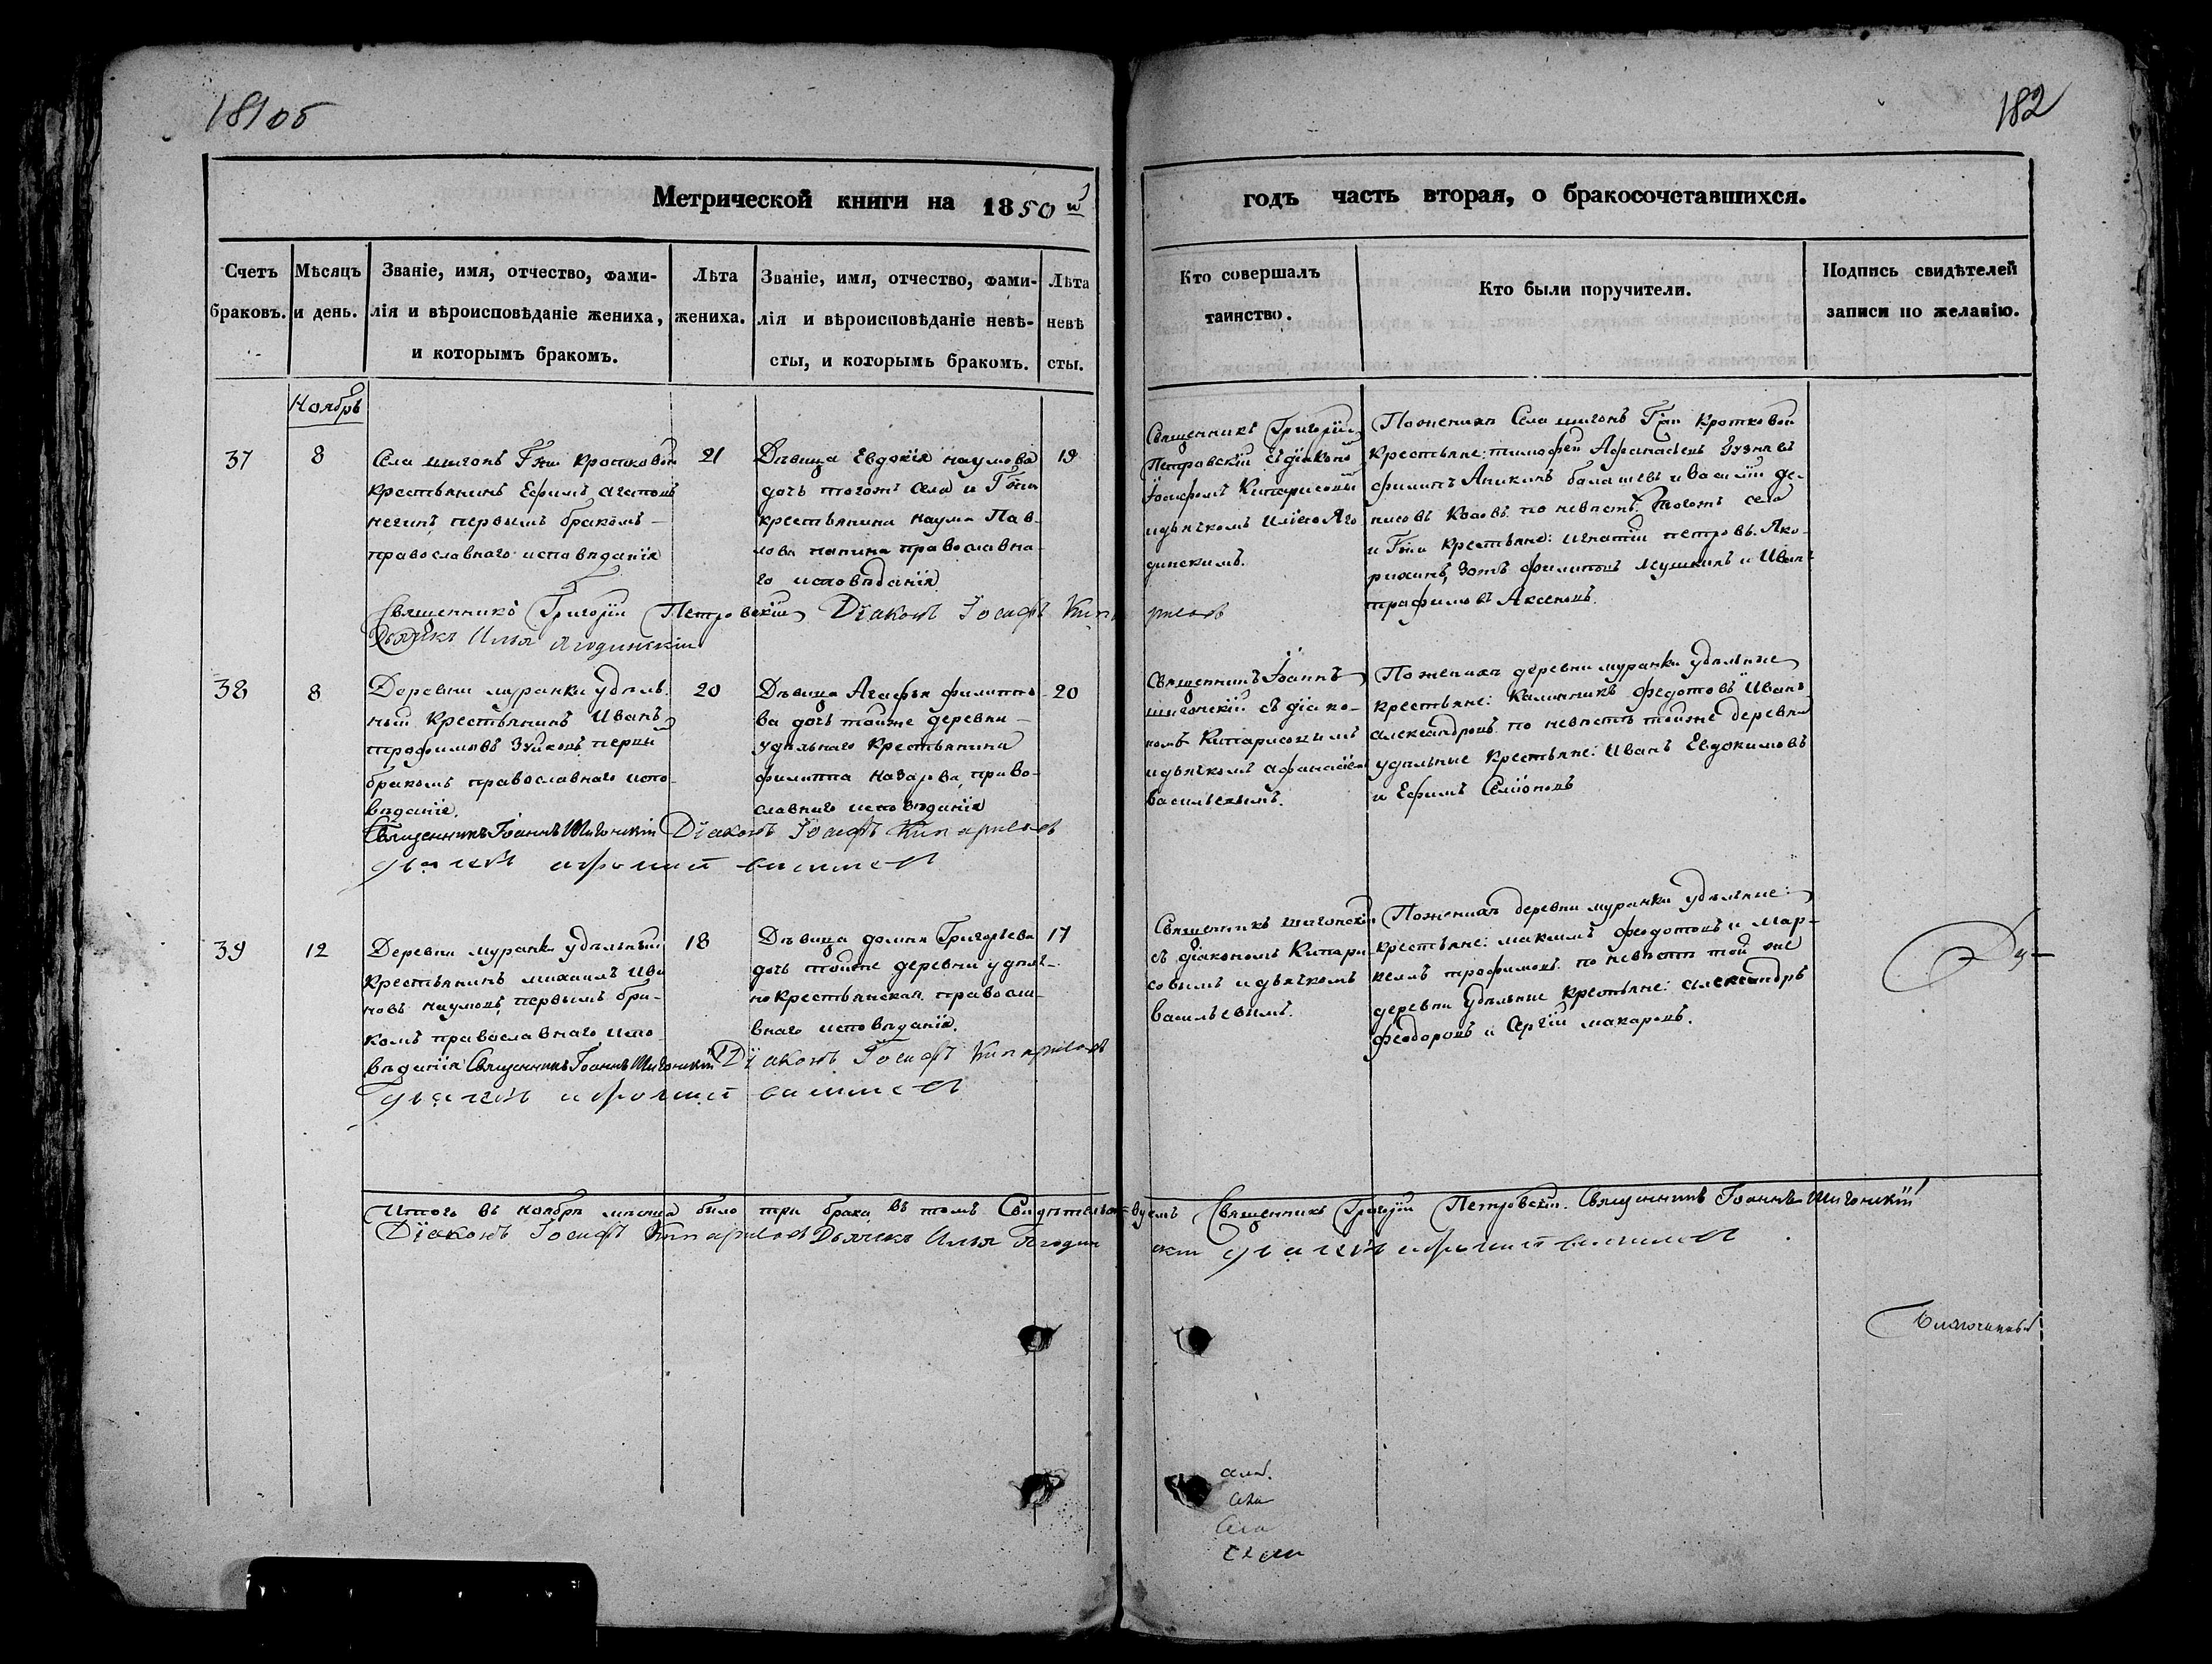 181 об
182
Метрической книги на 1850й
годъ часть вторая, о бракосочетавшихся.
Счетъ браковъ.
Мѣсяцъ и день.
Званіе, имя, отчество, фами-
лія и вѣроисповѣданіе жениха,
и которымъ бракомъ.
Лѣта
жениха.
Званіе, имя, отчество, фами-
лія и вѣроисповѣданіе невѣ-
сты, и которымъ бракомъ.
Лѣта
невѣ
сты.
Кто совершалъ
таинство.
Кто были поручители.
Подпись свидѣтелей
записи по желанію.
Ноябрь
37
8
Села шигонъ Гжи Кротковой
крестьянинъ Ефимъ Агаповъ
первымъ бракомъ
православнаго исповѣданія
21
Дѣвица Евдокія наумова
дочь тогожъ села и Гжи
крестьянина наума Пав-
лова папина православна-
го исповѣданія
19
Священникъ Григорій
Петровскій съ діаконо
Іосифомъ Кипарисовы
и дьячкомъ Иліею Яго
динскимъ.
Пожениха Села шигонъ Гжи Кротковой
крестьяне: тимофей Афанасьевъ
филипъ Аникинъ балашевъ и Василій де-
нисовъ по невѣстѣ: тогожъ села
и Гжи крестьяне: Игнатій петровъ
Зотъ филиповъ мушкинъ и Иванъ
трафимовъ Аксеновъ.
Священникъ Григорій Петровскій Діаконъ Іосифъ Кипарисовъ
Дьячекъ Илья Ягодинскій
38
8
Деревни муранки удѣль-
ный крестьянинъ Иванъ
трофимовъ Зуйковъ первы
бракомъ православнаго испо-
вѣданія.
20
Дѣвица Агафья филиппо-
ва дочь тойже деревни
удѣльнаго крестьянина
филиппа назарова, право-
славнаго исповѣданія
20
Священникъ Іоаннъ
шигонскій съ діако-
номъ Кипарисовымъ
и дьячкомъ афанасіемъ
васильевымъ.
Пожениха деревни муранки удѣльные
крестьяне: Калинникъ федотовъ Иванъ
александровъ по невѣстѣ тойже деревни
удѣльные крестьяне: Иванъ Евдокимовъ
и Ефимъ Семіоновъ
Священникъ Іоаннъ Шигонскій Діаконъ Іосифъ Кипарисовъ
39
12
Деревни муранки удѣльный
крестьянинъ михаилъ Ива
новъ наумовъ, первымъ бра-
комъ православнаго испо-
вѣданія
18
Дѣвица домна Григорьева
дочь тойже деревни удѣль-
но крестьянская, правосла-
внаго исповѣданія.
17
Священникъ шигонскій
съ діакономъ Кипари-
совымъ и дьячкомъ
васильевымъ.
Пожениха деревни муранки удѣльные
крестьяне: максимъ федотовъ и мар-
келъ трофимовъ по невѣстѣ той же
деревни удѣльные крестьяне: александръ
феодоровъ и Сергій макаровъ.
Священникъ Іоаннъ Шигонскій Діаконъ Іосифъ Кипарисовъ
Итого въ ноябрѣ мѣсяца было три брака въ томъ Свидѣтельствуемъ Священникъ Григорій Петровскій. Священникъ Іоаннъ Шигонскій
Діаконъ Іосифъ Кипарисовъ Дьячекъ Илья Ягодинскій
Благочинный